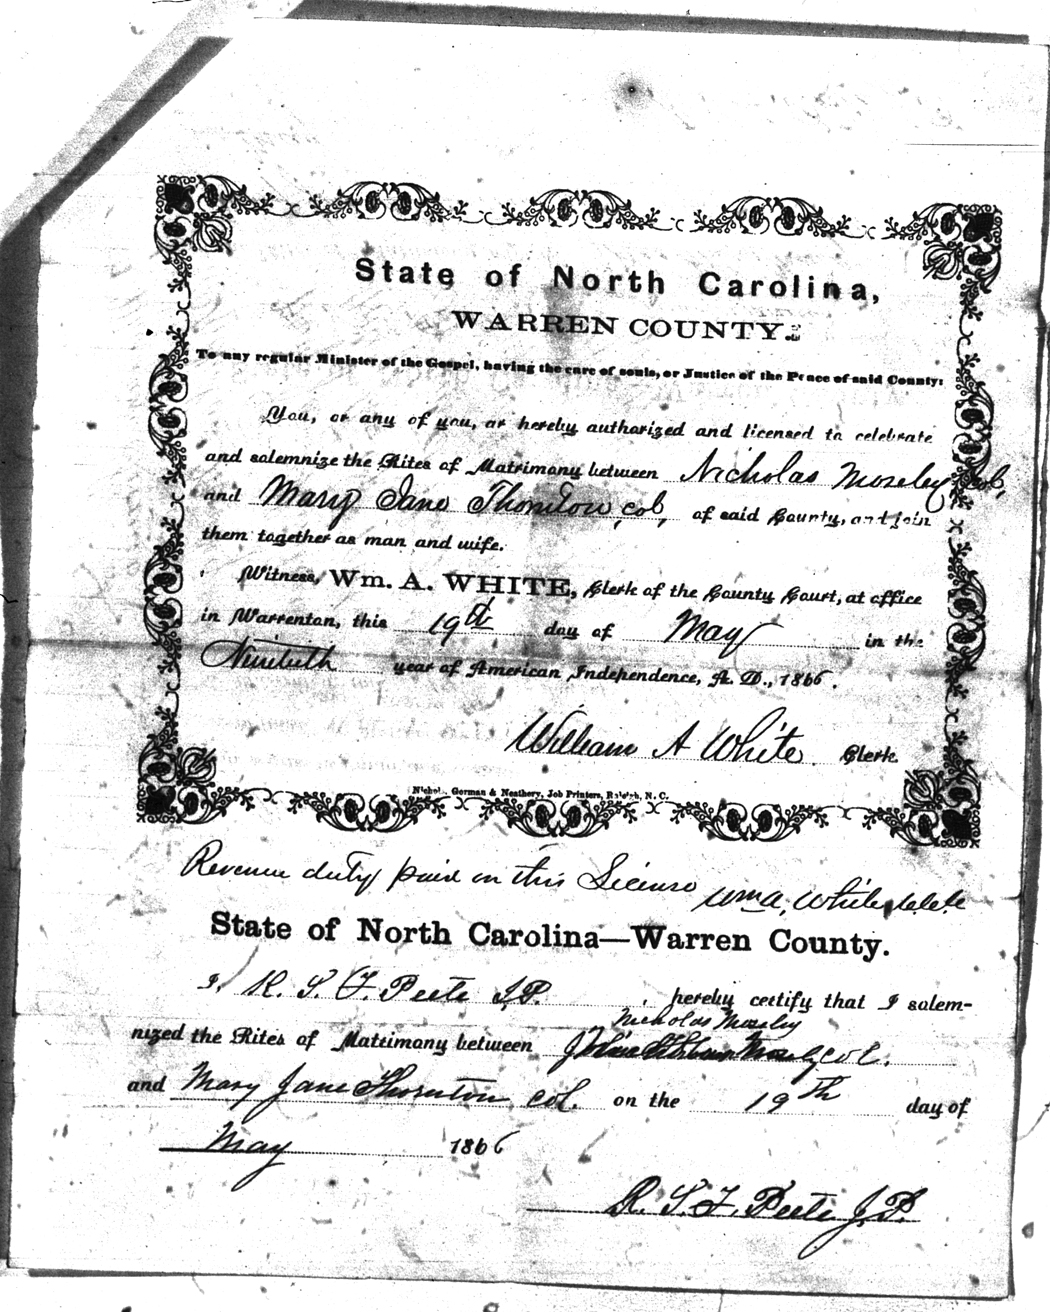 State of North Carolina,
WARREN COUNTY.
To any regular Minister of the Gospel, having the care of souls, or Justice of the Peace of said County:
You, or any of you, ar hereby authorized and licensed to celebrate
and solemnize the Rites of Matrimony between Nicholas Moseley Col,
and Mary Jane Thornton, col, of said County, and join
them together as man and wife.
Witness, Wm. A. WHITE, Clerk of the County Court, at office
in Warrenton, this 19th day of May in the
Ninetieth year of American Independence, A. D., 1866.
William A White Clerk.
Nichols, Gorman & Neathery, Job Printers, Raleigh, N. C.
Revenue duty paid on this License Wm A. White
State of North Carolina—Warren County.
I, R. S. F. Peete J.P. , hereby certify that I solem-
Nicholas Mosely
nized the Rites of Matrimony between col.
and Mary Jane Thornton col. on the 19th day of
May 1866
R. S. F. Peete J.P.